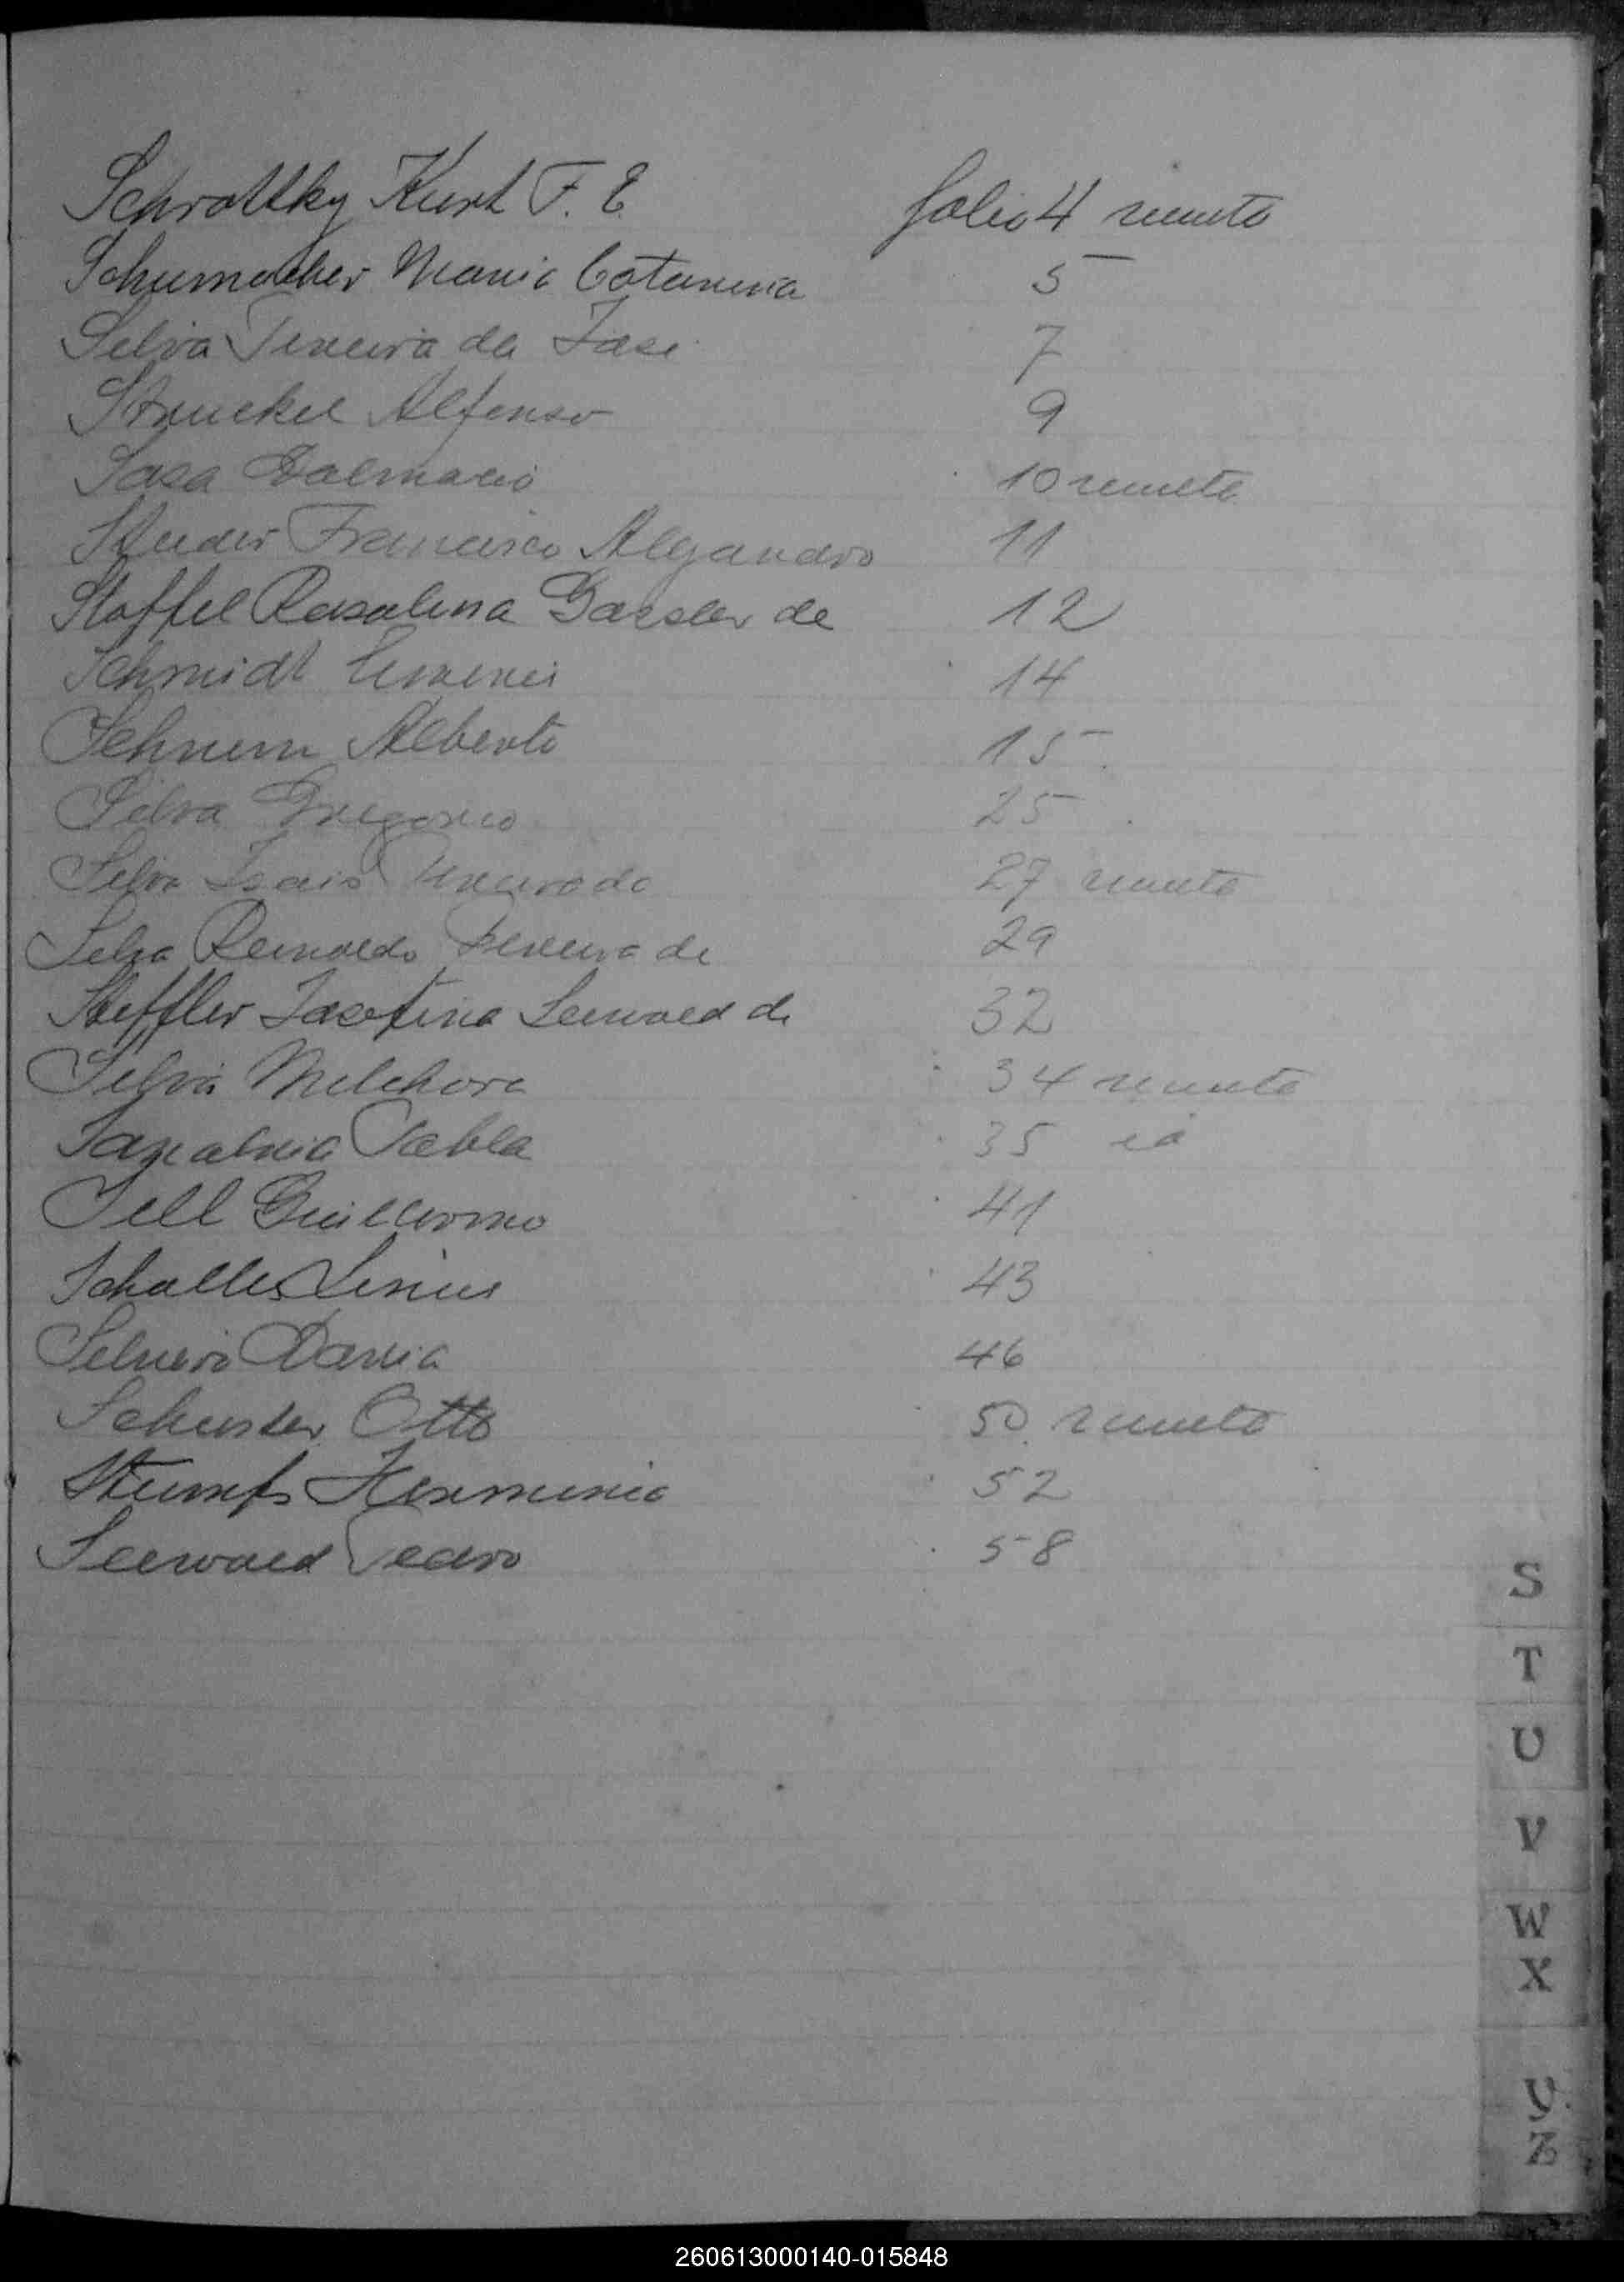 Schrottky Kurt F. E. folio 4 vuelto
Schumacher Maria Catarina 5
Silva Texeira da José 7
Struckel Alfonso 9
Sosa Dalmacio 10 vuelto
Studer Francisco Alejandro 11
Stoffel Rosalina Gassler de 12
Schmidt 14
Alberto 15
Silva Gregorio 25
Silva Texeira da 27 vuelto
Silva Reinoldo Texeira da 29
Steffler Josefina Seewald de 32
Silva Melchora 34 vuelto
Pabla 35 id
Sell Guillermo 41
Schaller 43
Silveira Maria 46
Schuster Otto 50 vuelto
Stumpfs Herminia 52
Seewald Pedro 58
S
T
U
V
W
X
Y
Z
260613000140-015848